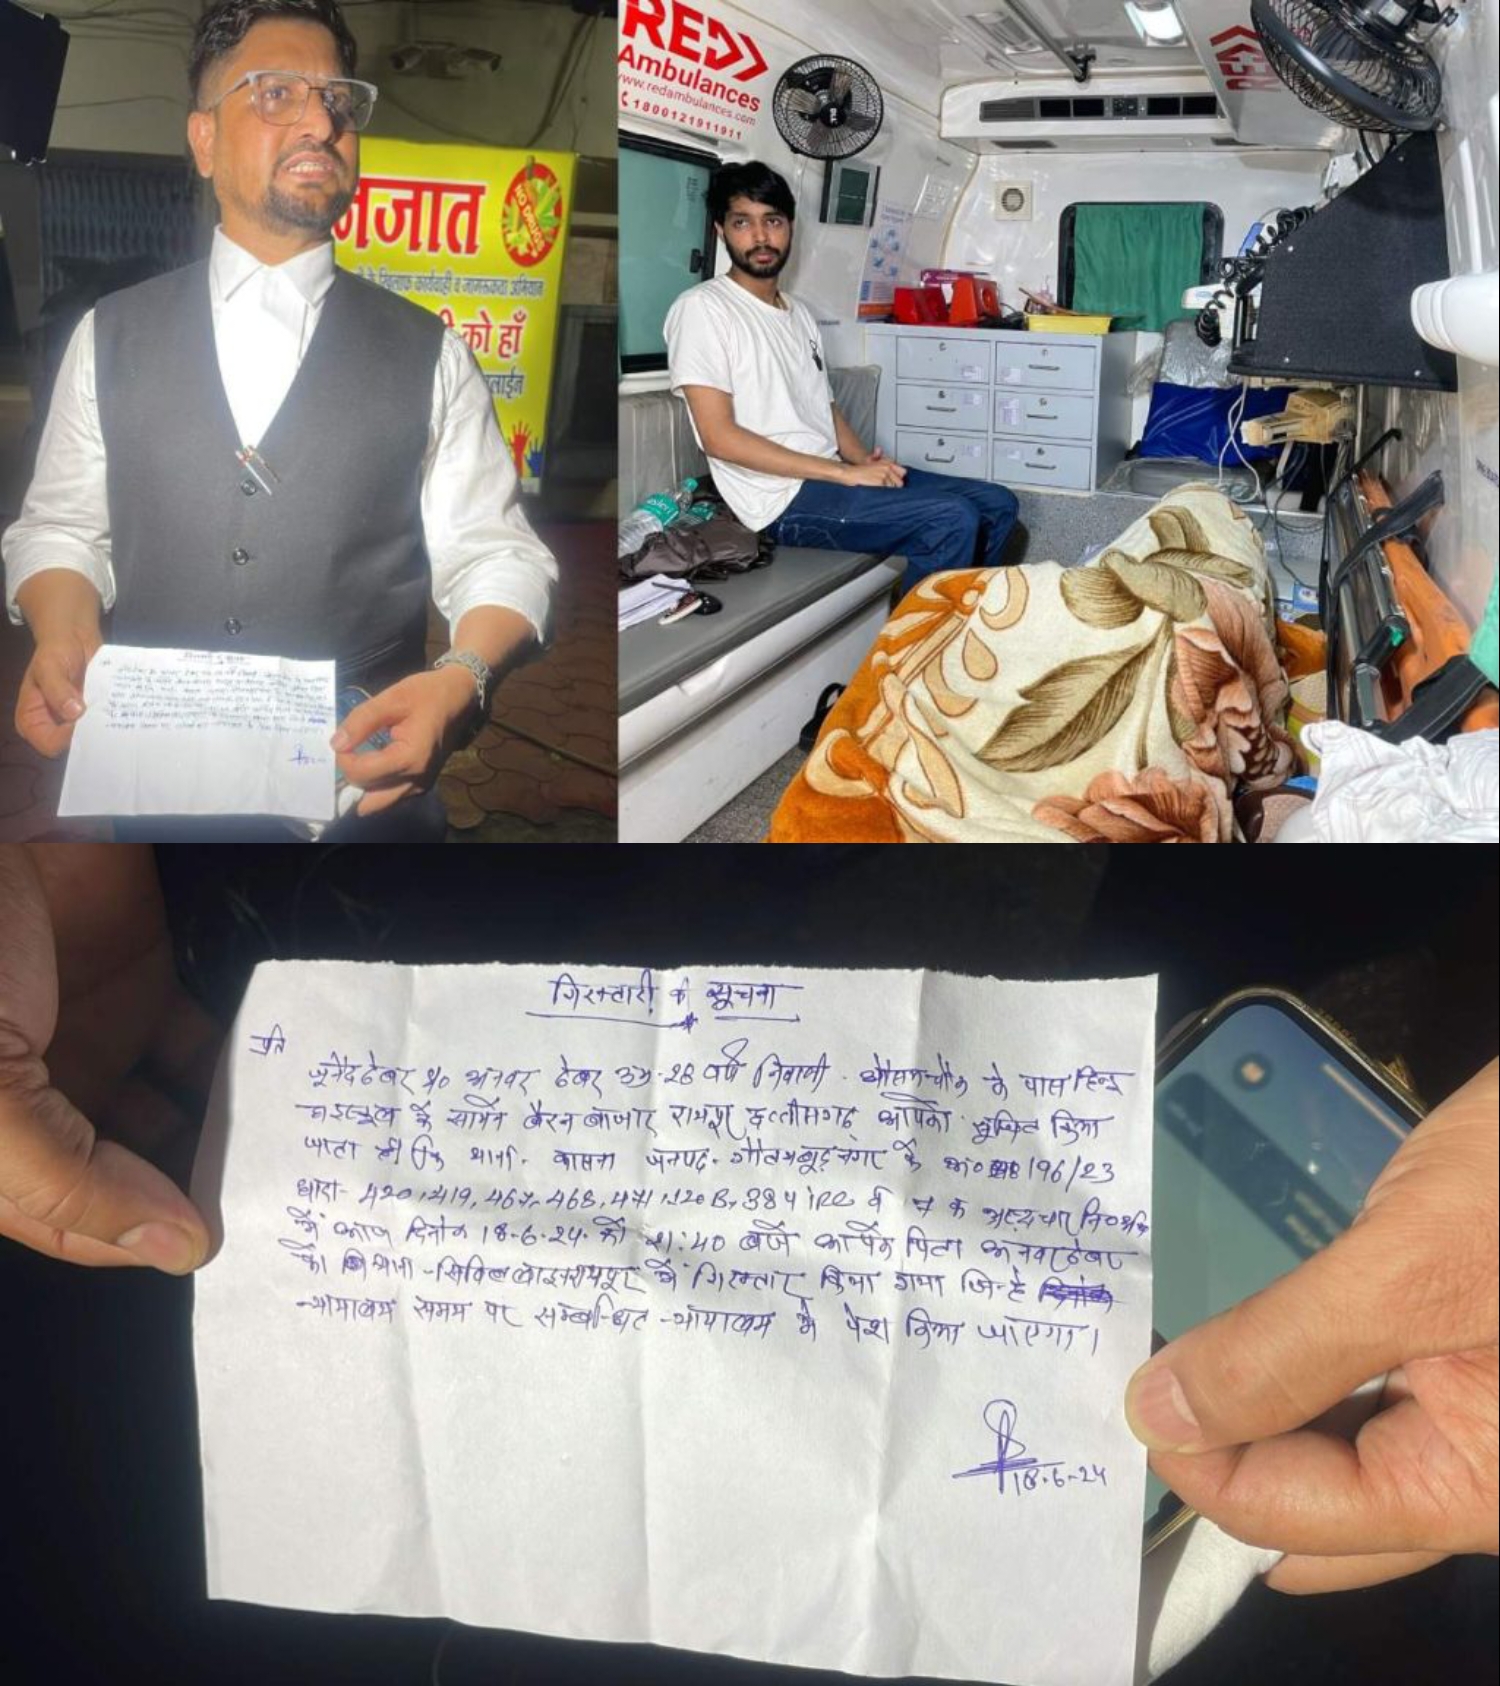 नजात
NO DRUGS
के खिलाफ कार्यवाही व जागरूकता अभियान
को हाँ
लाईन
RED
Ambulances
www.redambulances.com
1800121911911
RED
गिरफ्तारी की सूचना
प्रति
जुनैद ढेबर S/o अनवर ढेबर उम्र-28 वर्ष निवासी - के पास हिन्दू
हाईस्कूल के सामने बैरन बाजार रायपुर छत्तीसगढ़ आपको सूचित किया
जाता है कि थाना- कासना जनपद- गौतमबुद्धनगर के अ०सं० 196/23
धारा- 420, 419, 467, 468, 471, 120B, 384 IPC व भ्रष्टाचार नि०अधि
में आज दिनांक 18-6-24 को 21:40 बजे आपके पिता अनवर ढेबर
को थाना-सिविल लाइन रायपुर से गिरफ्तार किया गया जिन्हे
न्यायालय समय पर सम्बन्धित न्यायालय मे पेश किया जाएगा।
18-6-24